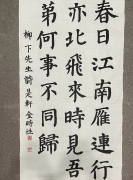 春日江南雁連行
亦北飛來時見吾
第何事不同歸
柳下先生詩 是軒 金時